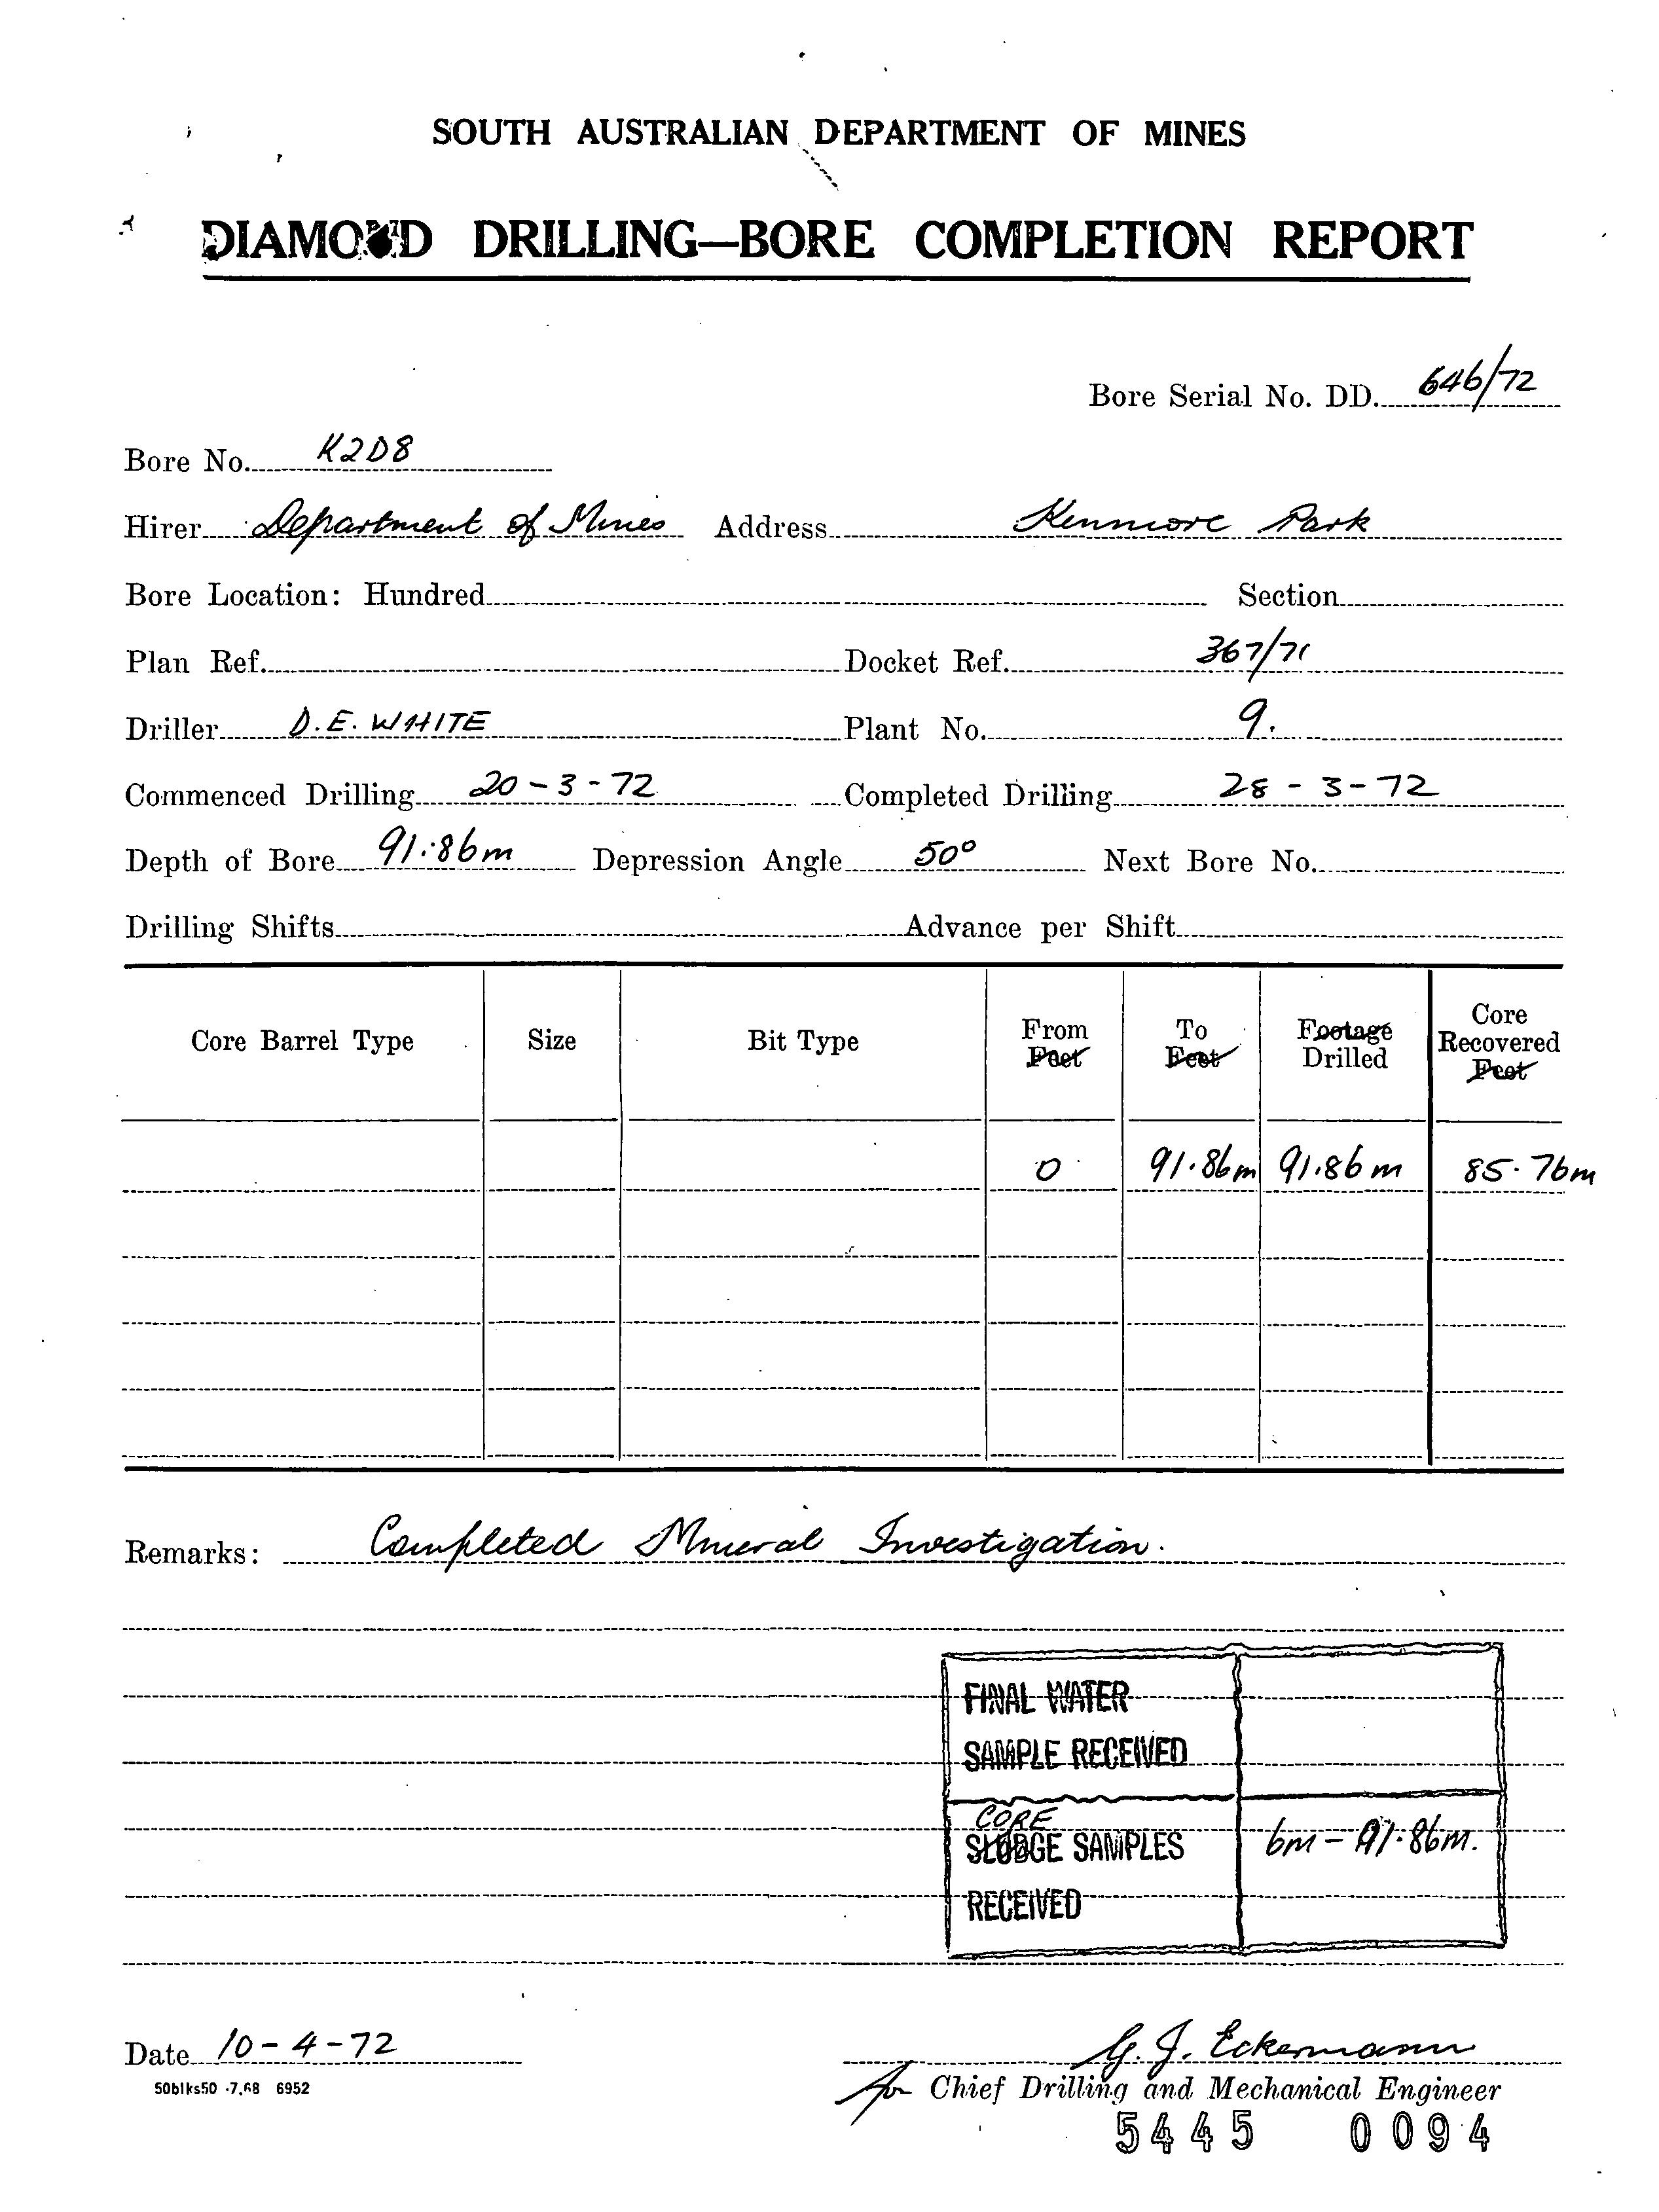 SOUTH AUSTRALIAN DEPARTMENT OF MINES
DIAMOND DRILLING—BORE COMPLETION REPORT
Bore Serial No. DD. 646/72
Bore No. K2D8
Hirer Department of Mines Address Kenmore Park
Bore Location: Hundred Section
Plan Ref. Docket Ref. 367/71
Driller D.E. WHITE Plant No. 9.
Commenced Drilling 20-3-72 Completed Drilling 28-3-72
Depth of Bore 91.86m Depression Angle 50° Next Bore No.
Drilling Shifts Advance per Shift
Core Barrel Type Size Bit Type From Feet To Feet Footage Drilled Core Recovered Feet
0 91.86m 91.86m 85.76m
Remarks: Completed Mineral Investigation.
FINAL WATER
SAMPLE RECEIVED
CORE
SLUDGE SAMPLES 6m - 91.86m.
RECEIVED
Date 10-4-72 G. J. Eckermann
50blks50 -7.68 6952 for Chief Drilling and Mechanical Engineer
5445 0094